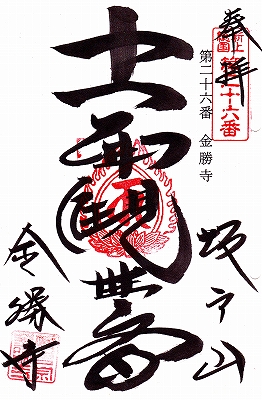 奉拝
第二十六番
第二十六番 金勝寺
坂戸山
十一面観世音
金勝寺